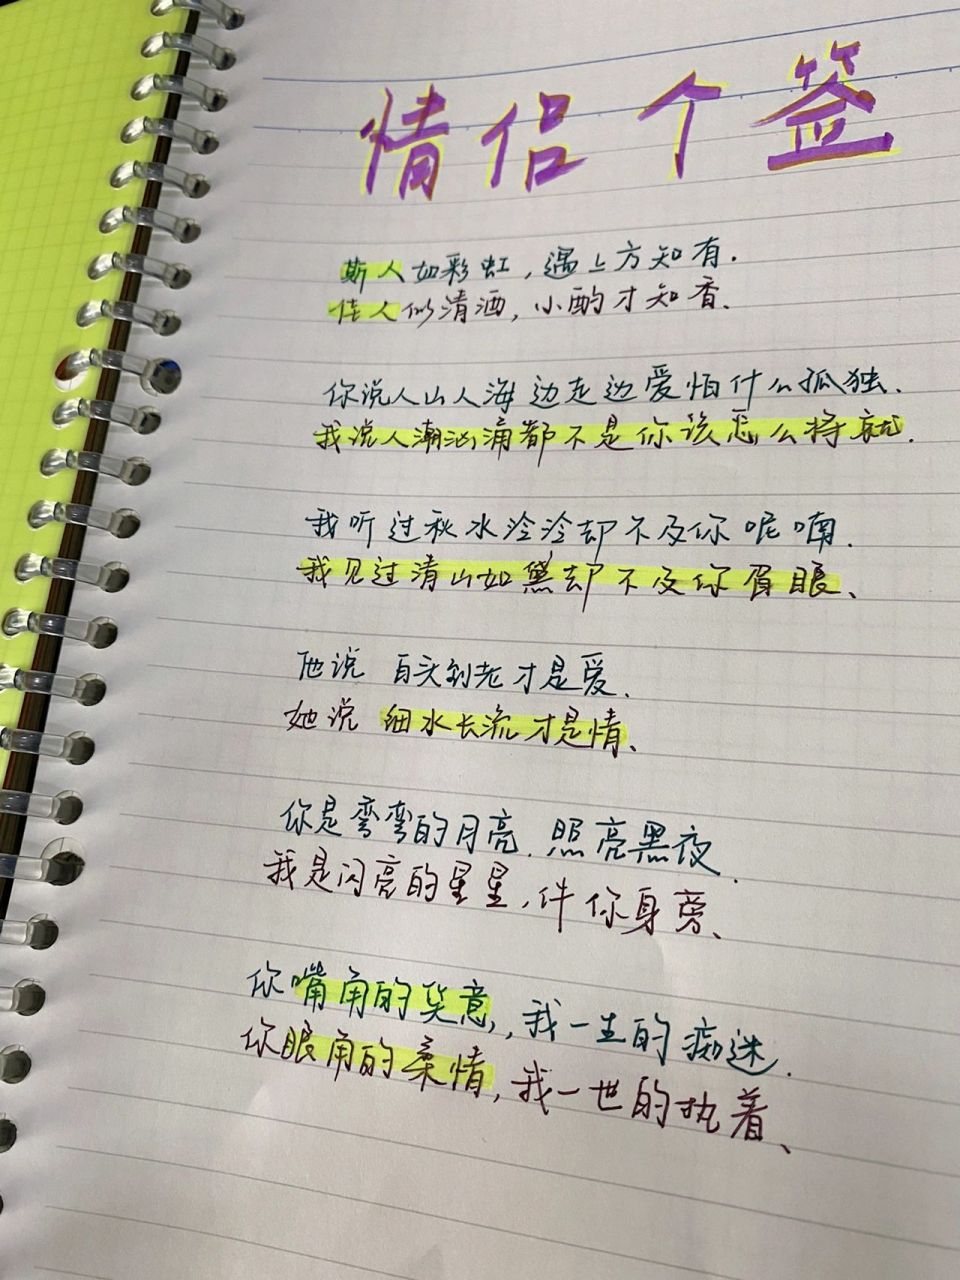 情侣个签
斯人如彩虹，遇上方知有.
佳人似清酒，小酌才知香、
你说人山人海边走边爱怕什么孤独.
我说人潮汹涌都不是你该怎么将就.
我听过秋水泠泠却不及你呢喃.
我见过清山如黛却不及你眉眼、
他说 白头到老才是爱、
她说 细水长流才是情、
你是弯弯的月亮.照亮黑夜.
我是闪亮的星星,伴你身旁、
你嘴角的笑意,,我一生的痴迷.
你眼角的柔情,我一世的执着、